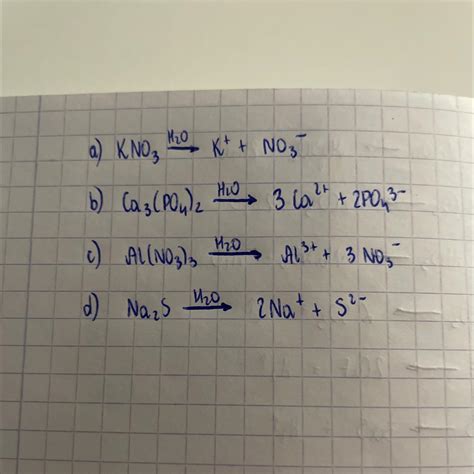 a) KNO₃ —H₂O→ K⁺ + NO₃⁻
b) Ca₃(PO₄)₂ —H₂O→ 3 Ca²⁺ + 2PO₄³⁻
c) Al(NO₃)₃ —H₂O→ Al³⁺ + 3 NO₃⁻
d) Na₂S —H₂O→ 2Na⁺ + S²⁻